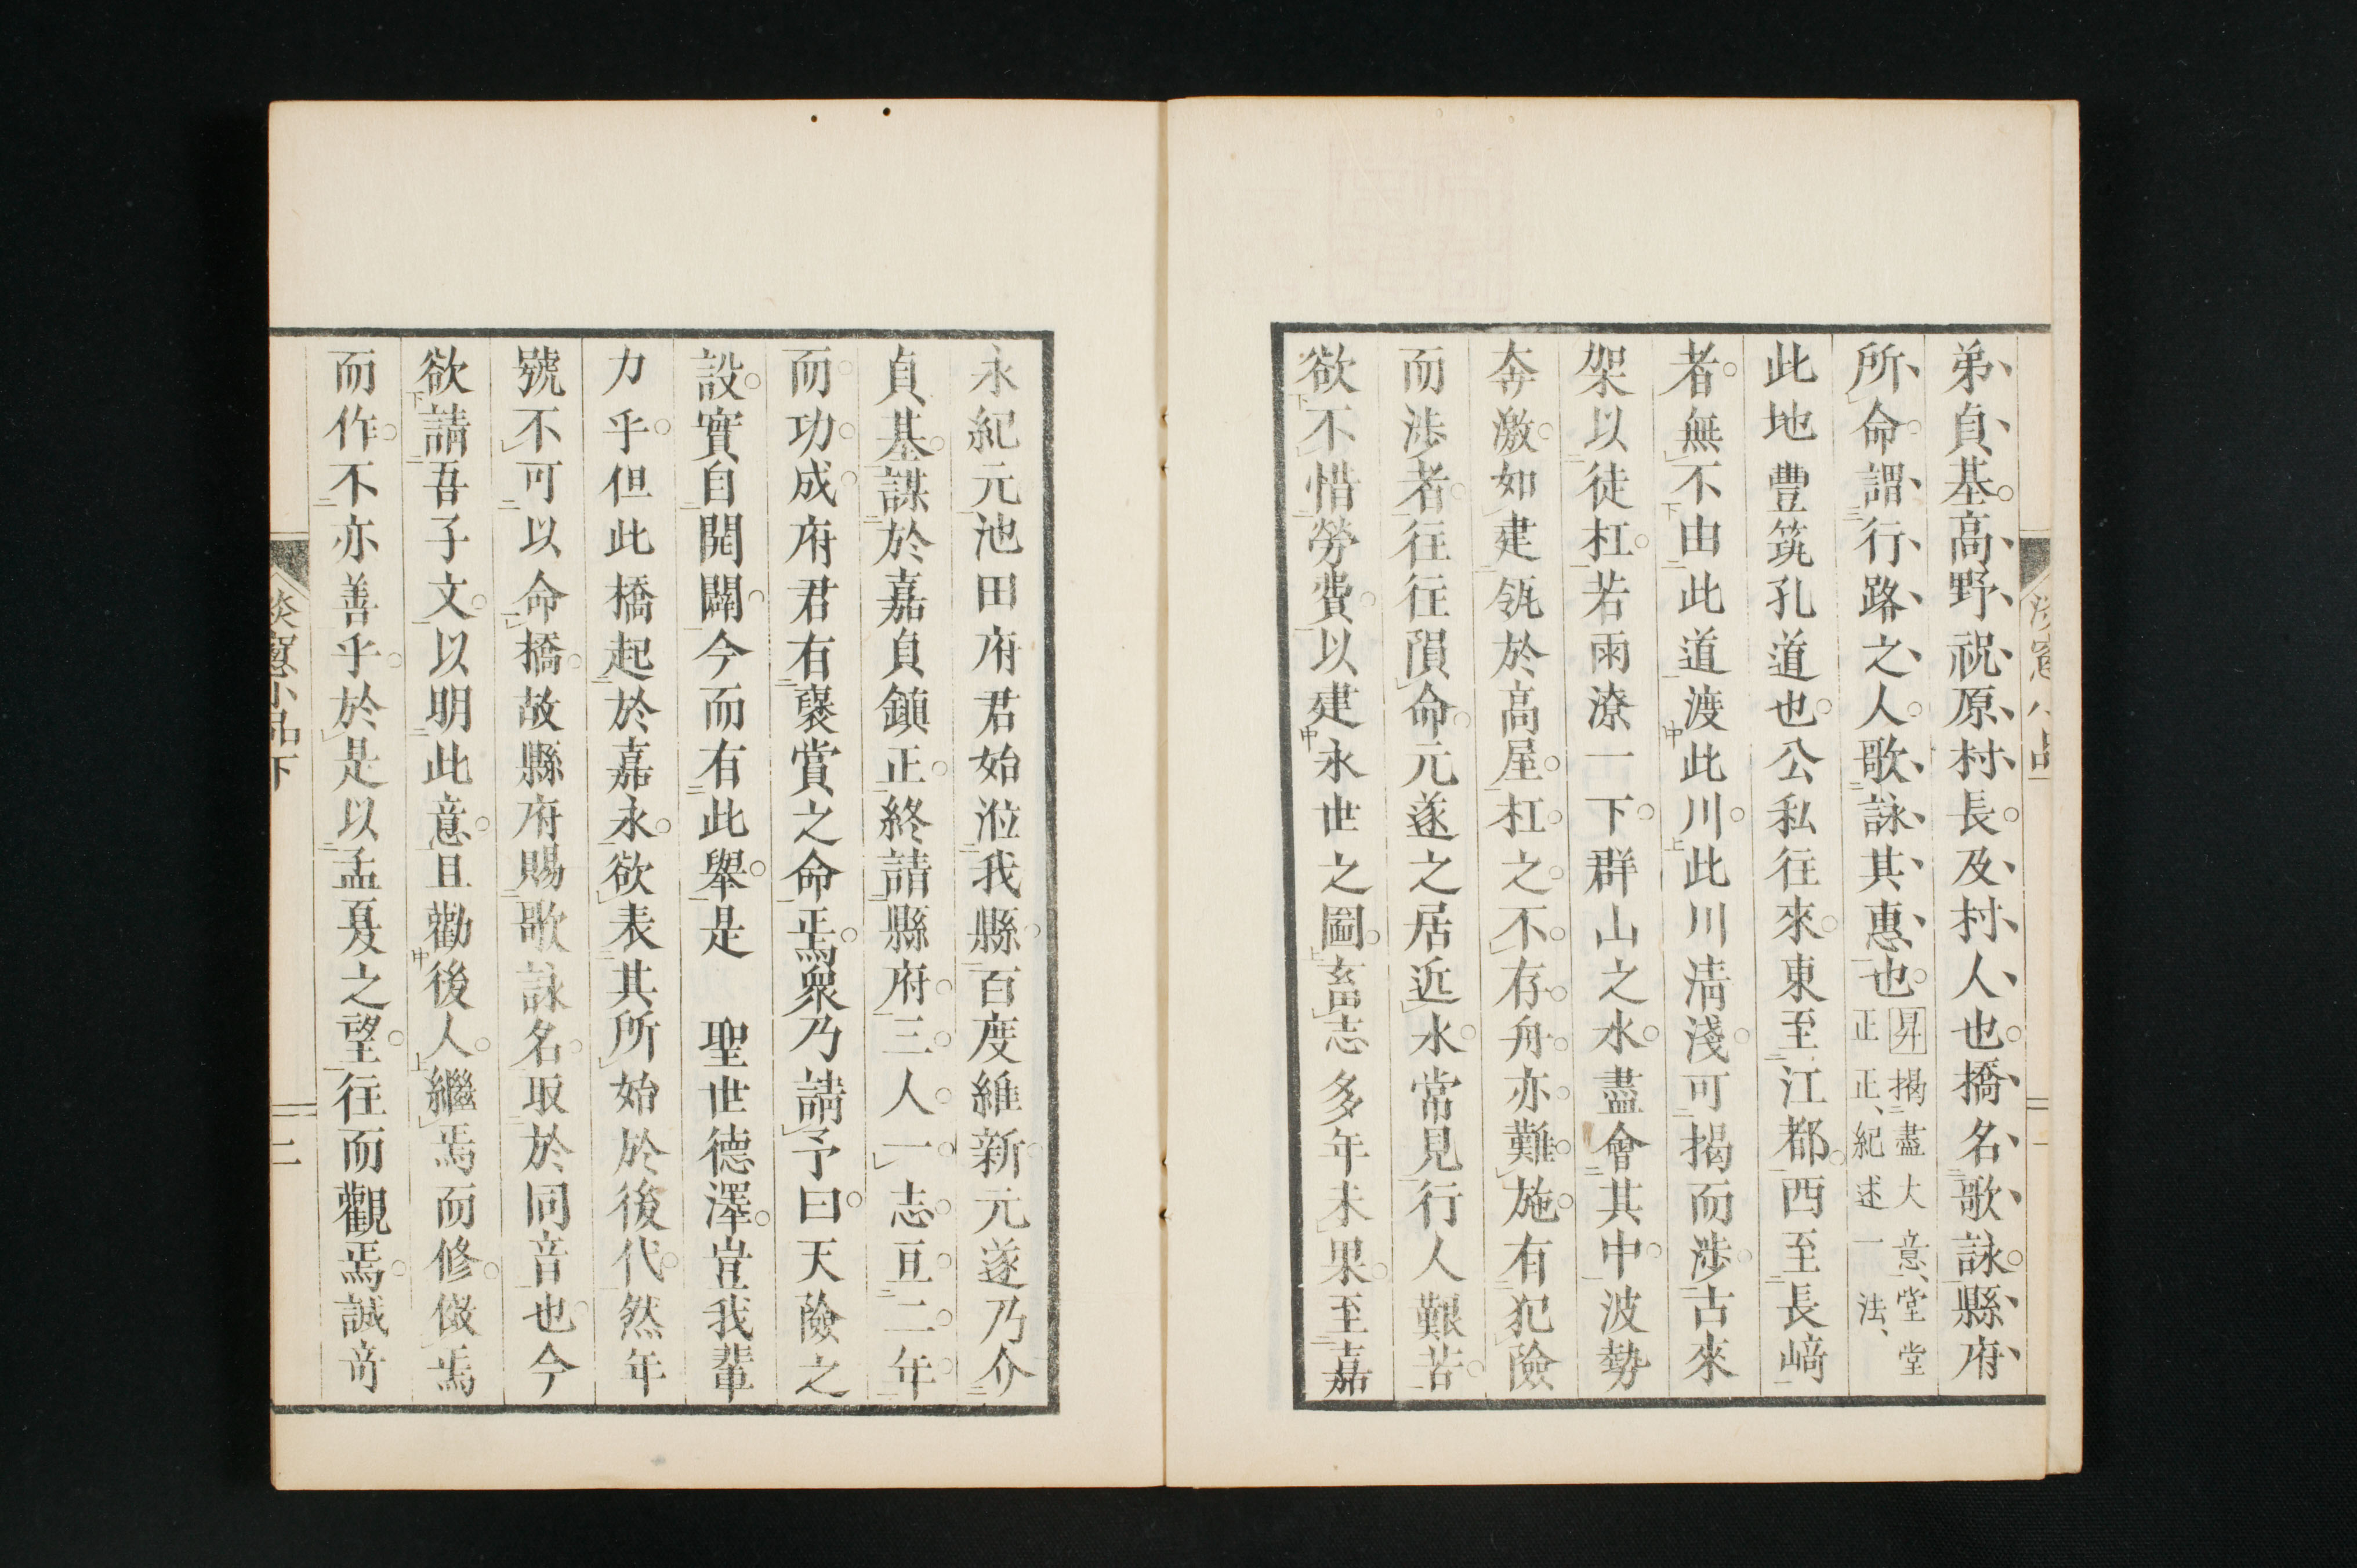 弟貞基高野祝原村長及村人也橋名歌詠縣府
所命謂行路之人歌詠其惠也
昇揭盡大意堂堂
正正紀述一法
此地豊筑孔道也公私往來東至江都西至長﨑
者無不由此道渡此川此川淸淺可揭而涉古來
架以徒杠若雨潦一下群山之水盡會其中波勢
奔激如建瓴於高屋杠之不存舟亦難施有犯險
而涉者往往隕命元遂之居近水常見行人艱苦
欲不惜勞費以建永世之圖畜志多年未果至嘉
永紀元池田府君始涖我縣百度維新元遂乃介
貞基謀於嘉貞鎮正終請縣府三人一志亘二年
而功成府君有襃賞之命焉衆乃請予曰天險之
設實自開闢今而有此舉是　聖世德澤豈我輩
力乎但此橋起於嘉永欲表其所始於後代然年
號不可以命橋故縣府賜歌詠名取於同音也今
欲請吾子文以明此意且勸後人繼焉而修儆焉
而作不亦善乎於是以孟夏之望往而觀焉誠奇
淡窻小品下
二